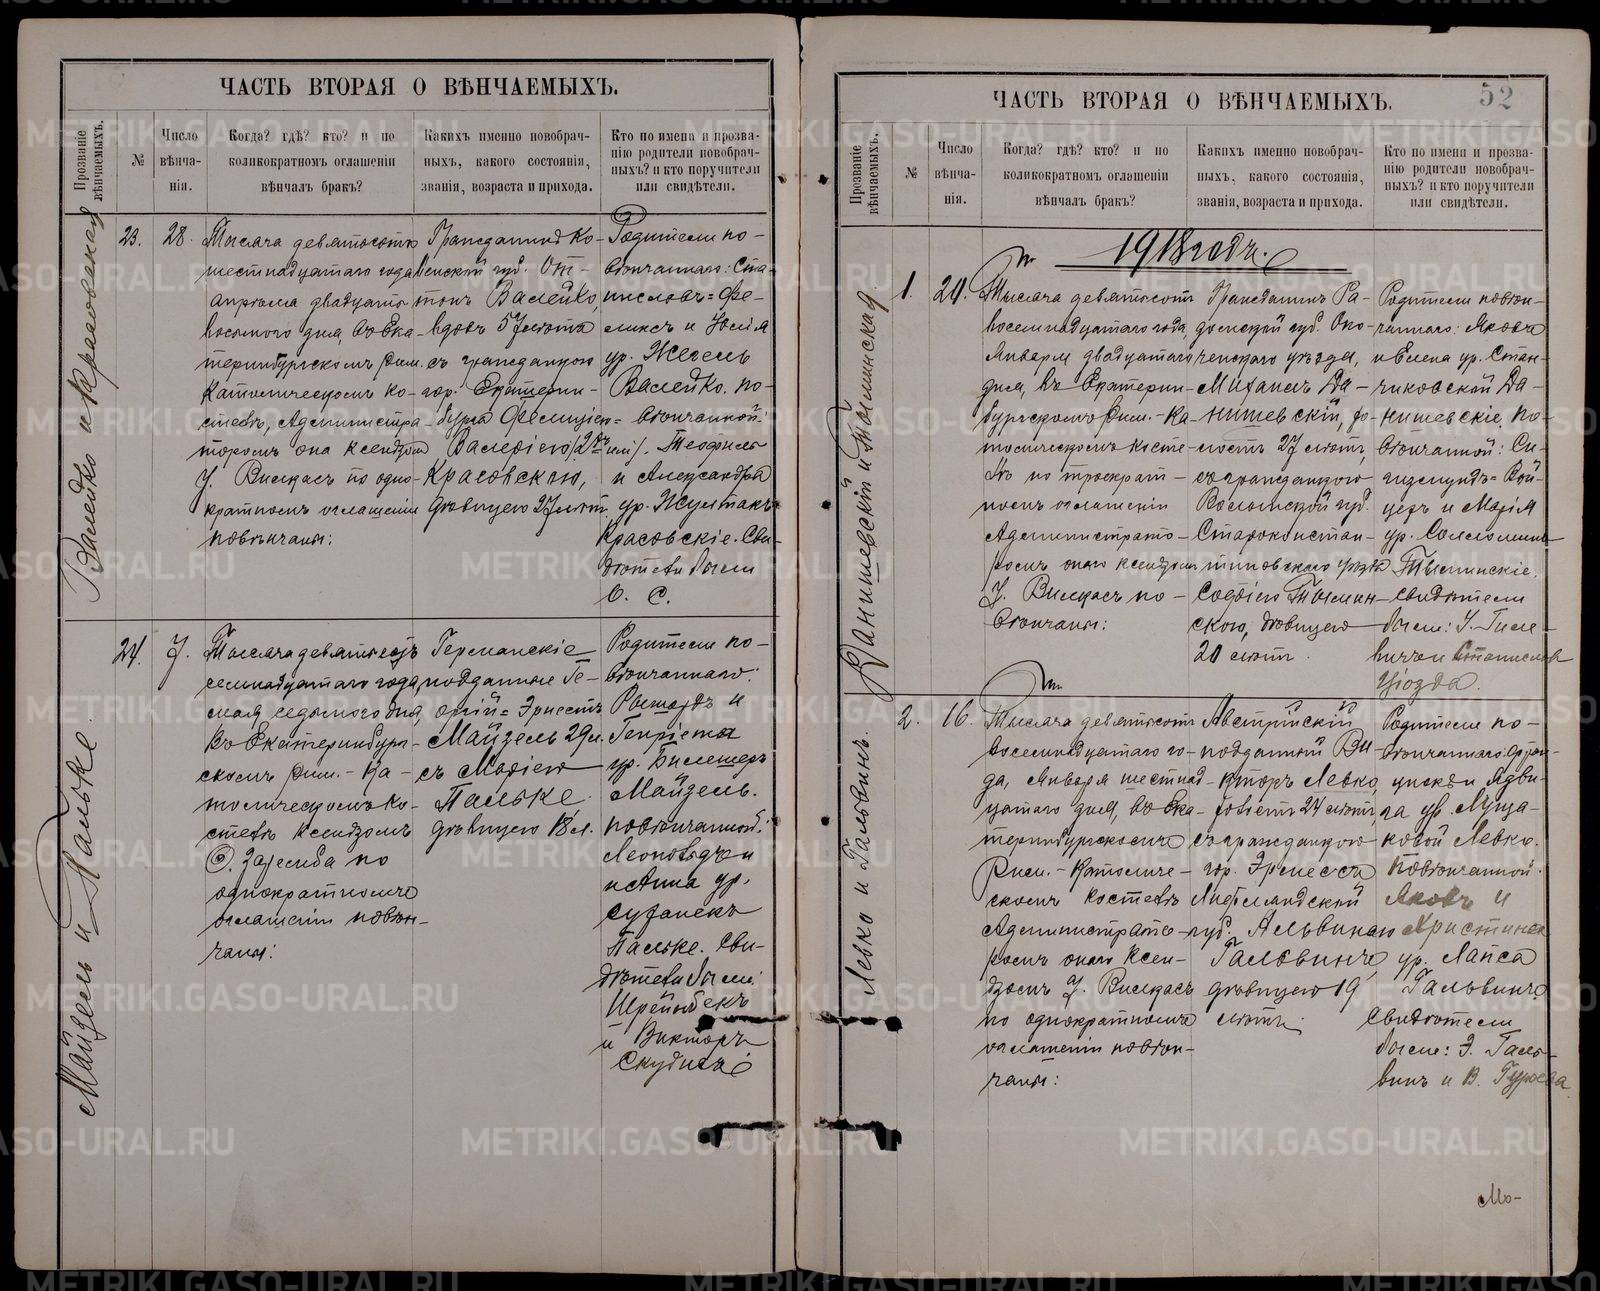 ЧАСТЬ ВТОРАЯ О ВѢНЧАЕМЫХЪ.
Прозваніе вѣнчаемыхъ.
№
Число вѣнча-нія.
Когда? гдѣ? кто? и по
коликократномъ оглашеніи
вѣнчалъ бракъ?
Какихъ именно новобрач-
ныхъ, какого состоянія,
званія, возраста и прихода.
Кто по имени и прозва-
нію родители новобрач-
ныхъ? и кто поручители
или свидѣтели.
Валейко и Красовская
23.
28.
Тысяча девятьсотъ
шестнадцатаго года
апрѣля двадцать
восьмого дня, въ Ека-
теринбургскомъ Рим.
Католическомъ ко-
стелѣ, Администра-
торомъ она ксендзом
І. Вилкасъ по одно-
кратномъ оглашеніи
повѣнчаны:
Гражданинъ Ко-
венской губ. Ан-
тонъ Валейко,
вдовъ 57 лѣтъ
съ гражданкою
гор. Екатерин-
бурга Фелиціею=
Валеріею (2хъ им.)
Красовскою,
дѣвицею 27 лѣт.
Родители по-
вѣнчаннаго: Ста-
ниславъ=Фе-
ликсъ и Юлія
ур. Жегель
Валейко. по-
вѣнчанной:
Теофилъ
и Александра
ур. Жултакъ
Красовскіе. Сви-
дѣтели были
О. С.
Майзель и Пальке
24.
7.
Тысяча девятьсотъ
семнадцатаго года,
мая седьмого дня,
въ Екатеринбург-
скомъ Рим.-Ка-
толическомъ Ко-
стелѣ ксендзомъ
Ф. Заремба по
однократномъ
оглашеніи повѣн-
чаны:
Германскіе
подданные Ге-
оргій=Эрнестъ
Майзель 29 л.
съ Маріею
Пальке
дѣвицею 18 л.
Родители по-
вѣнчаннаго:
Рышардъ и
Генріета
ур.
Майзель.
повѣнчанной:
Леопольдъ и
Анна ур.
Суханекъ
Пальке. Сви-
дѣтели были:
Шрейнбекъ
и Викторъ
Скудина
ЧАСТЬ ВТОРАЯ О ВѢНЧАЕМЫХЪ.
52
Прозваніе вѣнчаемыхъ.
№
Число вѣнча-нія.
Когда? гдѣ? кто? и по
коликократномъ оглашеніи
вѣнчалъ бракъ?
Какихъ именно новобрач-
ныхъ, какого состоянія,
званія, возраста и прихода.
Кто по имени и прозва-
нію родители новобрач-
ныхъ? и кто поручители
или свидѣтели.
1918 годъ.
Данишевскій и Тыминская
1.
20.
Тысяча девятьсотъ
восемнадцатаго года,
Января двадцатаго
дня, въ Екатерин-
бургскомъ Рим.-Ка-
толическомъ косте-
лѣ по троекрат-
номъ оглашеніи
Администрато-
ромъ онаго ксендзом
І. Вилкасъ по-
вѣнчаны:
Гражданинъ Ра-
домской губ. Опо-
ченскаго уѣзда,
Михаилъ Да-
нишевскій, хо-
лостъ 27 лѣтъ,
съ гражданкою
Волынской губ.
Староконстан-
тиновскаго уѣзда
Софіею Тымин-
скою, дѣвицею
20 лѣтъ.
Родители повѣн-
чаннаго: Яковъ
и Елена ур. Стан-
чиковской Да-
нишевскіе. по-
вѣнчанной: Си-
гизмундъ=Вой-
цехъ и Марія
ур.
Тыминскіе.
Свидѣтели
были: У. Гиле-
вичъ и Станиславъ
Гвозда.
Левко и Гальвинъ.
2.
16.
Тысяча девятьсотъ
восемнадцатаго го-
да, Января шестнад-
цатаго дня, въ Ека-
теринбургскомъ
Рим.-Католиче-
скомъ костелѣ
Администрато-
ромъ онаго Ксен-
дзомъ І. Вилкасъ
по однократномъ
оглашеніи повѣн-
чаны:
Австрійскій
подданный Ви-
кторъ Левко,
холост 24 лѣтъ,
съ гражданкою
гор.
Лифляндской
губ. Альвиною
Гальвинъ,
дѣвицею 19
лѣтъ.
Родители по-
вѣнчаннаго: Фран-
цискъ и Ядви-
га ур. Луца-
ковой Левко.
Повѣнчанной:
Яковъ и
Христина
ур. Лапса
Гальвинъ.
Свидѣтели
были: Э. Галь-
винъ и В. Гурьева.
Мо-
METRIKI.GASO-URAL.RU